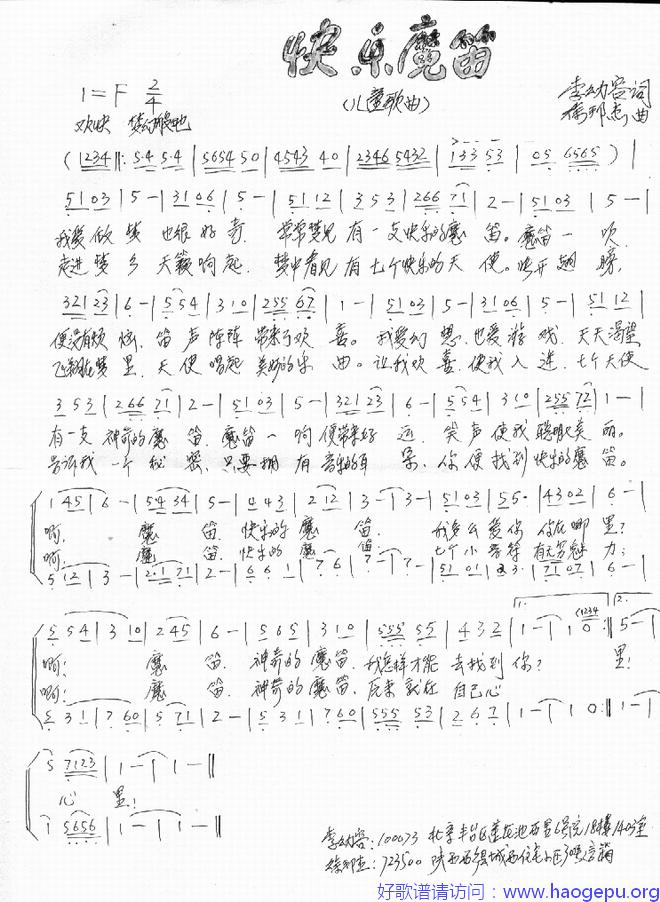 快乐魔笛
(儿童歌曲)
1=F 2/4
李幼容词
徐邦杰曲
欢快 梦幻般地
(1234 ‖: 54 54 | 5654 50 | 4543 40 | 2346 5432 | 133 53 | 05 6565 ) |
5103 | 5 - | 3106 | 5 - | 5112 | 353 | 266 71 | 2 - | 5103 | 5 - |
我爱做梦 也很好奇 常常梦见 有一支快乐的魔笛。魔笛一吹
走进梦乡 天籁响起 梦中看见 有七个快乐的天使。展开翅膀,
321 23 | 6 - | 554 | 310 | 255 67 | 1 - | 5103 | 5 - | 3106 | 5 - | 5112 |
便没有烦恼, 笛声阵阵 带来了欢喜。我爱幻想, 也爱游戏, 天天渴望
飞翔在梦里, 天使唱起 美妙的乐曲。让我欢喜, 使我入迷, 七个天使
353 | 266 71 | 2 - | 5103 | 5 - | 321 23 | 6 - | 554 | 310 | 255 72 | 1 - |
有一支 神奇的魔笛, 魔笛一响 便带来好运, 笑声使我 聪明美丽。
告诉我 一个秘密, 只要拥有 音乐的耳朵, 你便找到 快乐的魔笛。
145 | 6 - | 54 34 | 5 - | 443 | 212 | 3 - | 3 - | 5103 | 55· | 4302 | 6 - |
啊, 魔笛, 快乐的魔笛, 我多么爱你 你在哪里?
啊, 魔笛, 快乐的魔笛, 七个小音符 有无穷魅力;
512 | 3 - | 21 71 | 2 - | 661 | 76 | 7 - | 7 - | 5101 | 33· | 7107 | 6 - |
554 | 310 | 245 | 6 - | 565 | 310 | 555 55 | 432 | 1 - | 10 :‖ 5 - |
1.
(1234
2.
啊! 魔笛, 神奇的魔笛, 我怎样才能 去找到你? 里!
啊! 魔笛, 神奇的魔笛, 原来就在 自己心
531 | 760 | 571 | 2 - | 531 | 760 | 555 53 | 267 | 1 - | 10 :‖ 1 - |
5 7123 | 1 - | 1 - ‖
心里!
1 5656 | 1 - | 1 - ‖
李幼容: 100073 北京丰台区莲花池西里6号院18楼1403室
徐邦杰: 723500 陕西西乡县城西住宅小区
好歌谱请访问：www.haogepu.org